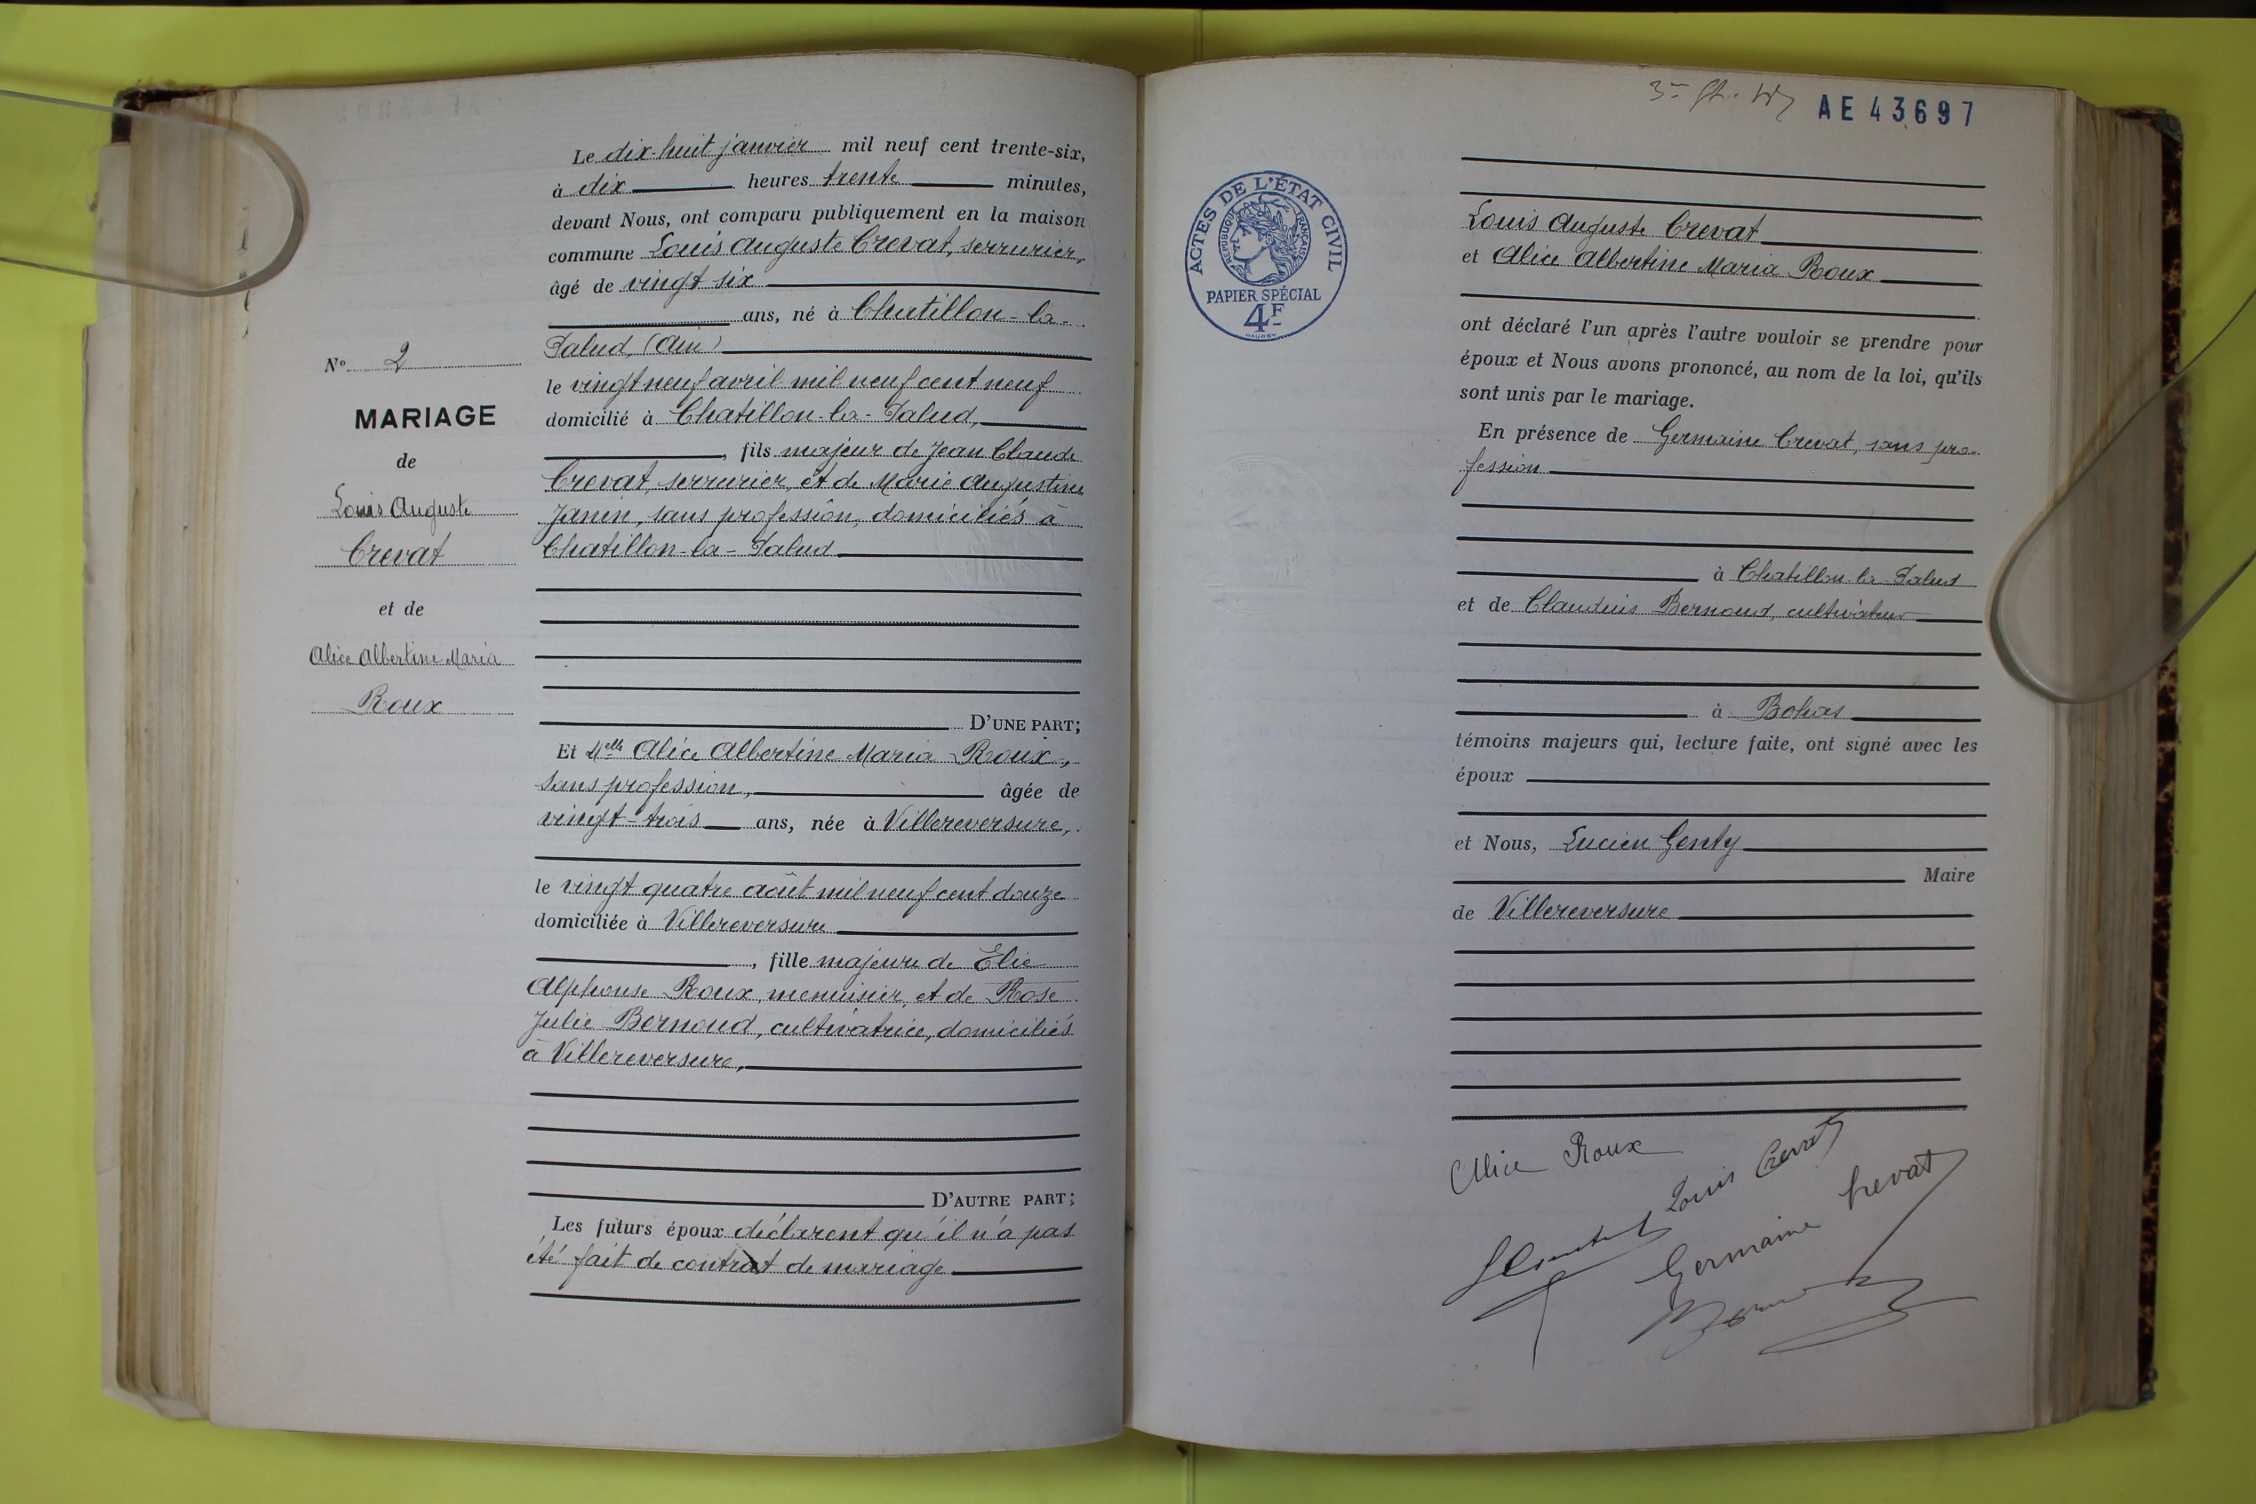 Le dix-huit janvier mil neuf cent trente-six,
à dix heures trente minutes,
devant Nous, ont comparu publiquement en la maison
commune Louis Auguste Crevat, serrurier,
âgé de vingt six
ans, né à Chatillon-la-
Palud, (Ain)
N° 2
le vingt neuf avril mil neuf cent neuf
MARIAGE
domicilié à Chatillon-la-Palud,
de
, fils majeur de Jean Claude
Crevat, serrurier, et de Marie Augustine
Louis Auguste
Janin, sans profession, domiciliés à
Crevat
Chatillon-la-Palud
et de
Alice Albertine Maria
Roux
D'UNE PART;
Et Melle Alice Albertine Maria Roux,
sans profession, âgée de
vingt-trois ans, née à Villereversure,
le vingt quatre août mil neuf cent douze
domiciliée à Villereversure
, fille majeure de Elie
Alphonse Roux, menuisier, et de Rose
Julie Bernoud, cultivatrice, domiciliés
à Villereversure,
D'AUTRE PART;
Les futurs époux déclarent qu'il n'a pas
été fait de contrat de mariage
AE 43697
ACTES DE L'ÉTAT CIVIL
RÉPUBLIQUE FRANÇAISE
PAPIER SPÉCIAL
4F
Louis Auguste Crevat
et Alice Albertine Maria Roux
ont déclaré l'un après l'autre vouloir se prendre pour
époux et Nous avons prononcé, au nom de la loi, qu'ils
sont unis par le mariage.
En présence de Germaine Crevat, sans pro-
fession
à Chatillon-la-Palud
et de Claudius Bernoud, cultivateur
à Bohas
témoins majeurs qui, lecture faite, ont signé avec les
époux
et Nous, Lucien Genty
Maire
de Villereversure
Alice Roux
Louis Crevat
Germaine Crevat